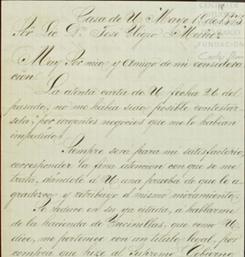 Casa de U. Mayo 1º de
Por Lic. D. José
Muy Sor mio y Amigo de mi considera
cion.
La atenta carta de U fecha 26 del
pasado, no me habia sido posible contestar
sela, por urgentes negocios que me lo habian
impedido.
Siempre sera para mi satisfactorio
corresponder la fina atencion con que se me
trata, dandole á U una prueba de que le a
gradezco y retribuyo el mismo miramiento.
Se reduce en su ya citada, á hablarme
de la hacienda de Encinillas, que como U
dice, me pertenece con un titulo legal, por
compra que hize al Supremo Gobierno